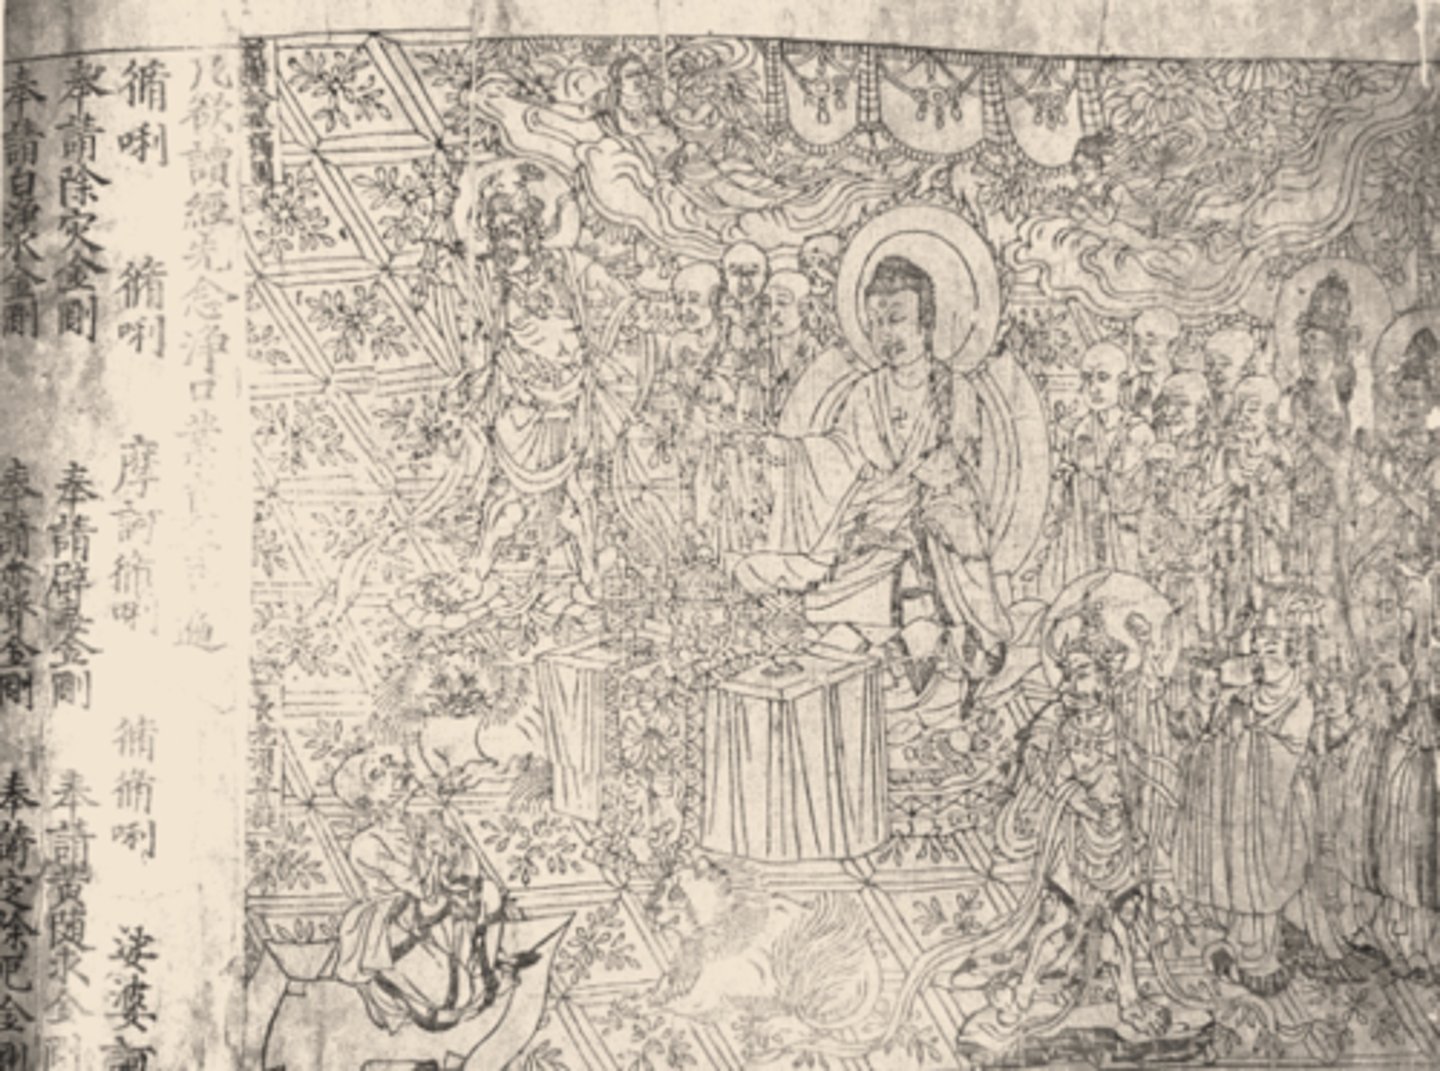 凡欲讀經先念淨口業真言遍
脩唎 脩唎 摩訶脩唎 脩脩唎 娑婆訶
奉請除灾金剛 奉請辟毒金剛 奉請黃隨求金剛
奉請白淨水金剛 奉請赤聲金剛 奉請定除厄金剛